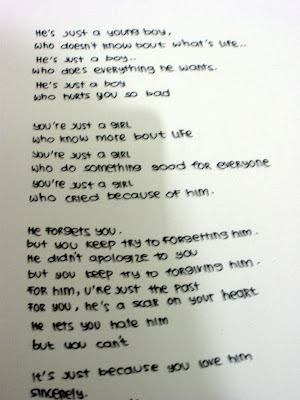 He's just a young boy,
who doesn't know bout what's life..
He's just a boy..
who does everything he wants.
He's just a boy
who hurts you so bad
you're just a girl
who know more bout life
you're just a girl
who do something good for everyone
you're just a girl
who cried because of him.
He forgets you.
but you keep try to forgetting him.
He didn't apologize to you
but you keep try to forgiving him.
for him, u're just the past
for you, he's a scar on your heart
He lets you hate him
but you can't
it's just because you love him
sincerely.